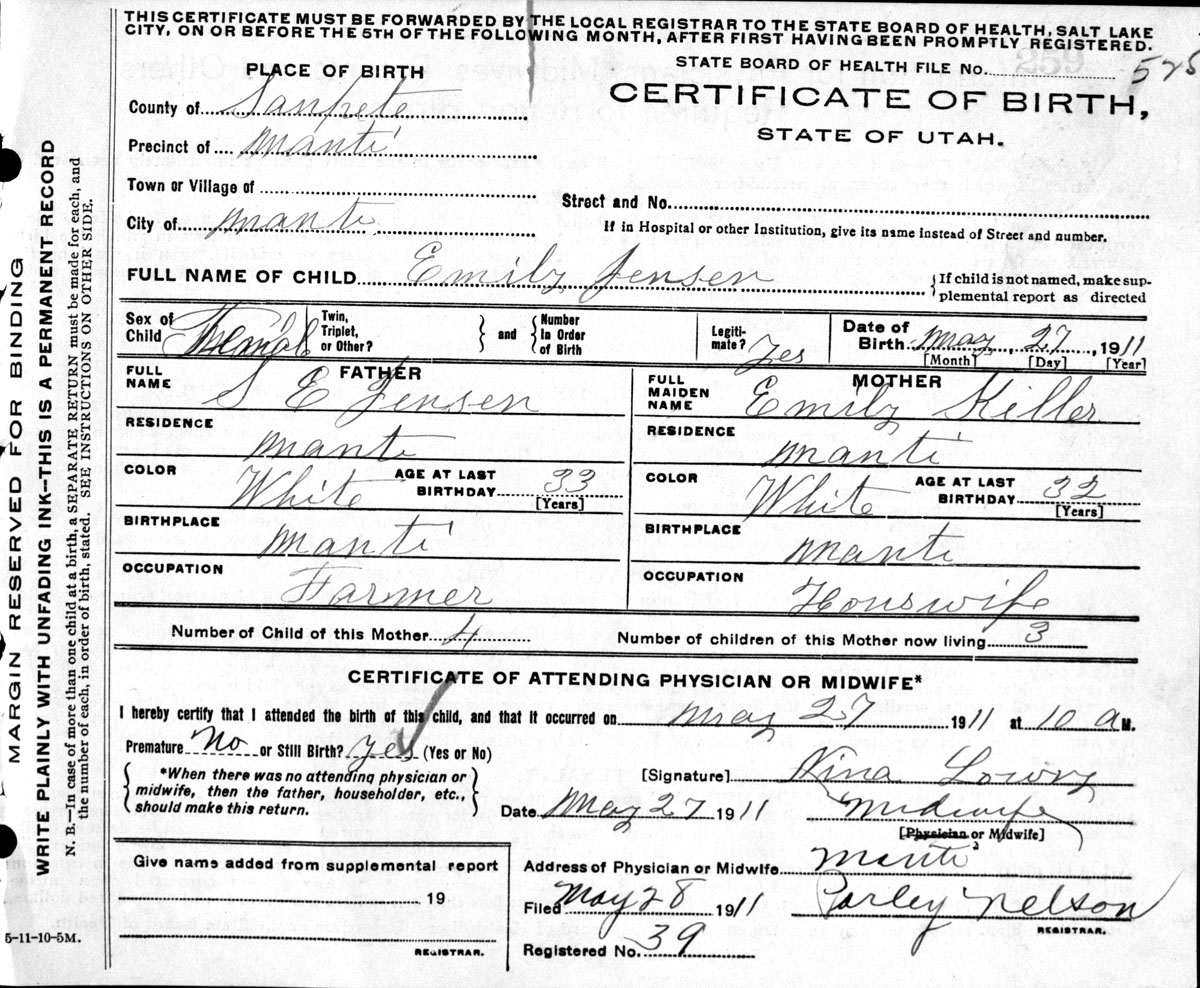 THIS CERTIFICATE MUST BE FORWARDED BY THE LOCAL REGISTRAR TO THE STATE BOARD OF HEALTH, SALT LAKE
CITY, ON OR BEFORE THE 5TH OF THE FOLLOWING MONTH, AFTER FIRST HAVING BEEN PROMPTLY REGISTERED.
PLACE OF BIRTH
STATE BOARD OF HEALTH FILE No. 525
County of Sanpete
CERTIFICATE OF BIRTH,
STATE OF UTAH.
Precinct of Manti
Town or Village of
Street and No.
City of Manti
If in Hospital or other Institution, give its name instead of Street and number.
FULL NAME OF CHILD Emily Jensen {If child is not named, make sup-
plemental report as directed
Sex of Child Femal
Twin, Triplet, or Other? } and { Number In Order of Birth
Legiti-mate? Yes
Date of Birth May, 27, 1911
[Month] [Day] [Year]
FATHER
FULL NAME S E Jensen
RESIDENCE Manti
COLOR White AGE AT LAST BIRTHDAY 33 [Years]
BIRTHPLACE Manti
OCCUPATION Farmer
MOTHER
FULL MAIDEN NAME Emily Keller
RESIDENCE Manti
COLOR White AGE AT LAST BIRTHDAY 32 [Years]
BIRTHPLACE Manti
OCCUPATION Houswife
Number of Child of this Mother 4 Number of children of this Mother now living 3
CERTIFICATE OF ATTENDING PHYSICIAN OR MIDWIFE*
I hereby certify that I attended the birth of this child, and that it occurred on May 27 1911 at 10 a M.
Premature No or Still Birth? yes (Yes or No)
{ *When there was no attending physician or
midwife, then the father, householder, etc.,
should make this return. }
[Signature] Nina Lowry
Date May 27 1911 Midwife
[Physician or Midwife]
Give name added from supplemental report
19
REGISTRAR.
Address of Physician or Midwife Manti
Filed May 28 1911 Parley Nelson
REGISTRAR.
Registered No. 39
MARGIN RESERVED FOR BINDING
WRITE PLAINLY WITH UNFADING INK—THIS IS A PERMANENT RECORD
N. B.—In case of more than one child at a birth, a SEPARATE RETURN must be made for each, and
the number of each, in order of birth, stated. SEE INSTRUCTIONS ON OTHER SIDE.
5-11-10-5M.